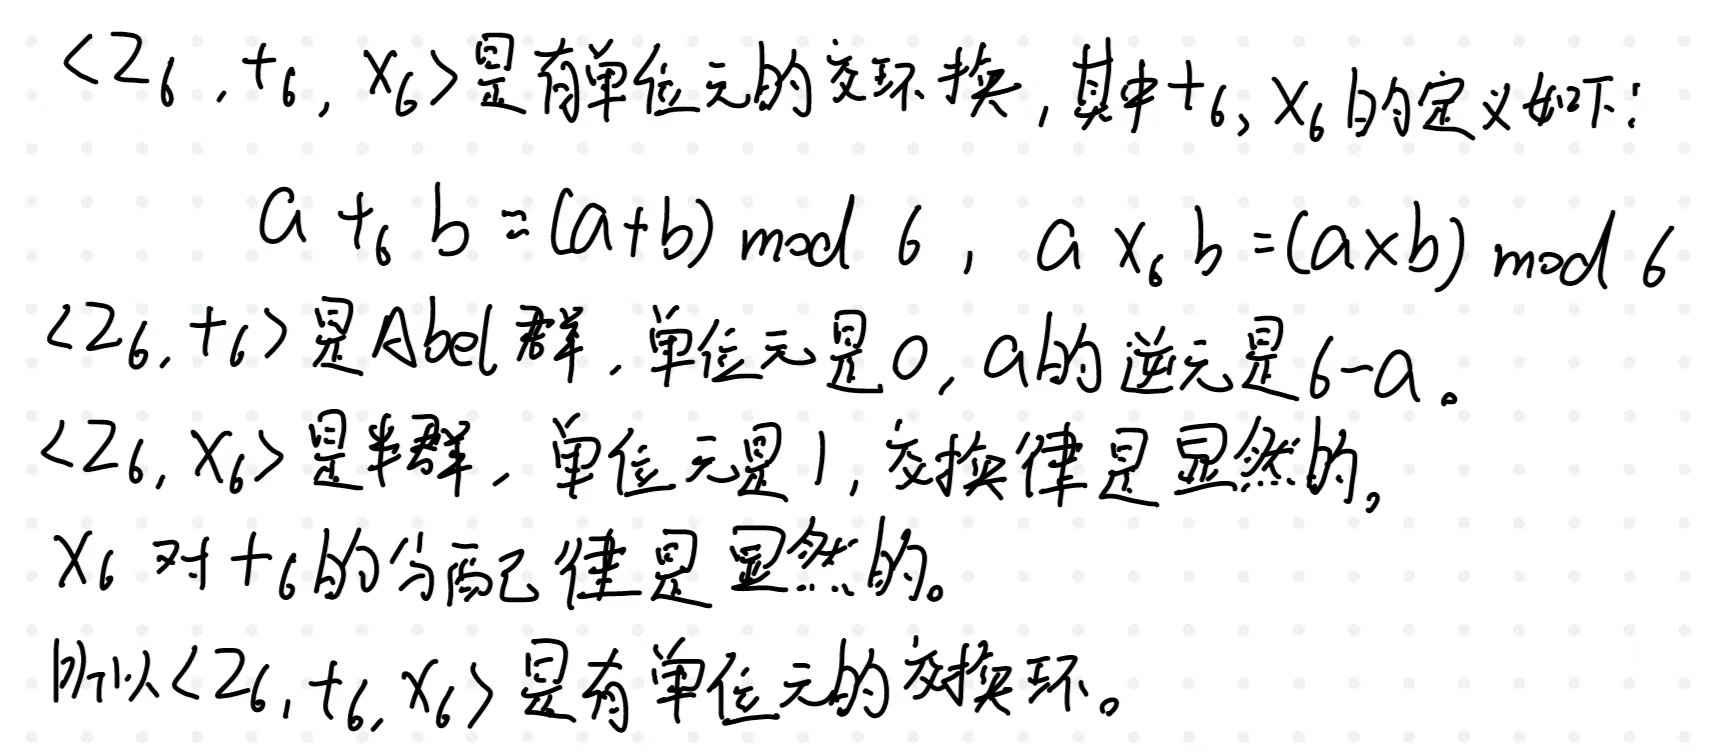 <Z₆, +₆, ×₆>是有单位元的交环换,其中+₆, ×₆的定义如下:
a +₆ b = (a+b) mod 6, a ×₆ b = (a×b) mod 6
<Z₆, +₆>是Abel群,单位元是0, a的逆元是6-a。
<Z₆, ×₆>是半群,单位元是1,交换律是显然的,
×₆ 对+₆的分配律是显然的。
所以<Z₆, +₆, ×₆>是有单位元的交换环。